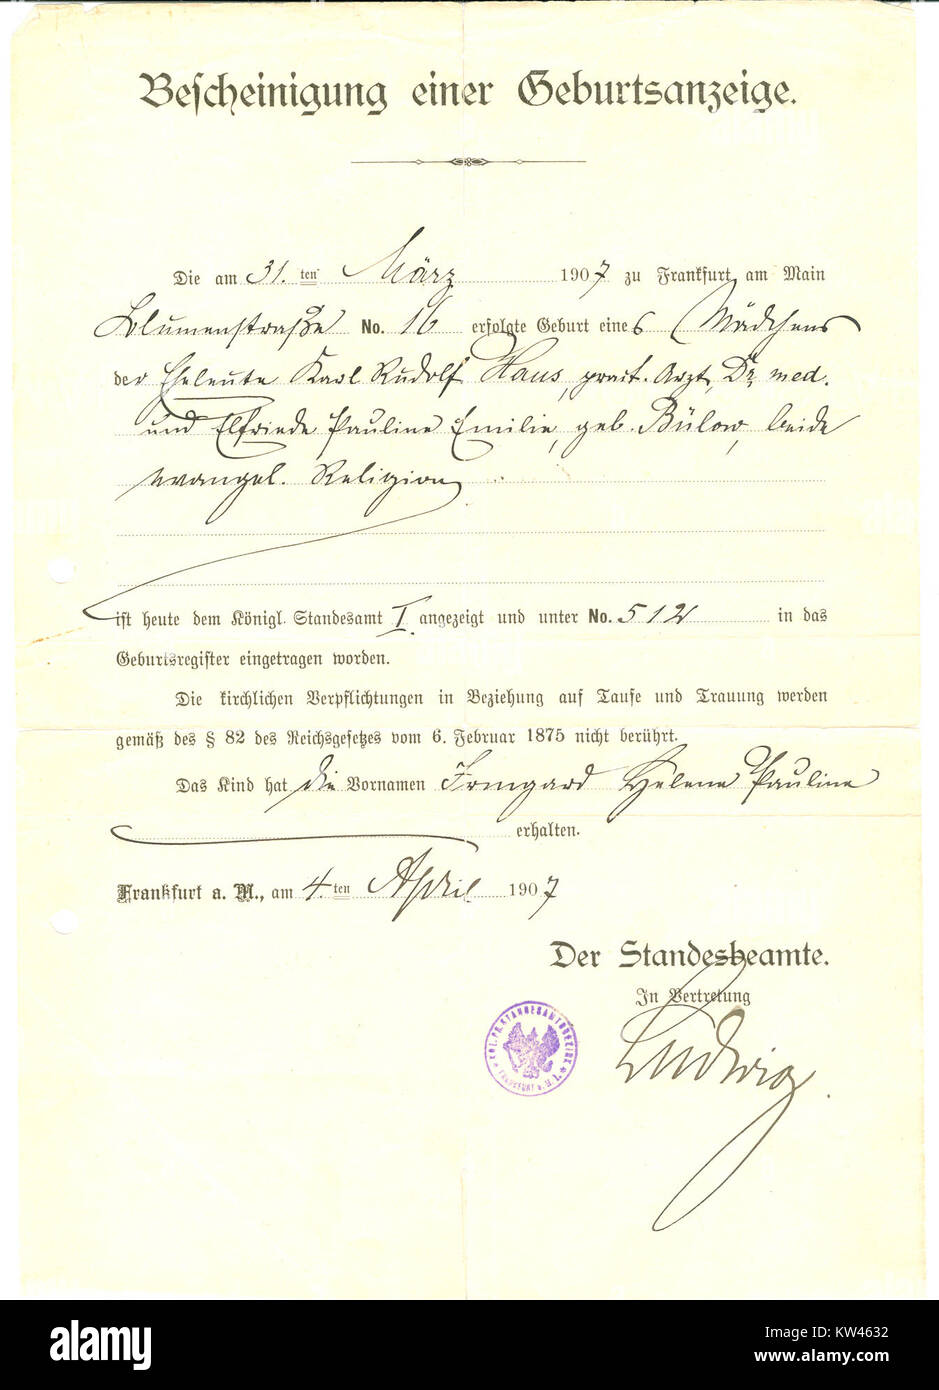 Bescheinigung einer Geburtsanzeige.
Die am 31.ten März 1907 zu Frankfurt am Main
Blumenstraße No. 16 erfolgte Geburt eines Mädchens
der Eheleute Karl Rudolf Haus, prakt. Arzt, Dr. med.
und Elfriede Pauline Emilie, geb. Bülow, beide
evangel. Religion
ist heute dem Königl. Standesamt I angezeigt und unter No. 512 in das
Geburtsregister eingetragen worden.
Die kirchlichen Verpflichtungen in Beziehung auf Taufe und Trauung werden
gemäß des § 82 des Reichsgesetzes vom 6. Februar 1875 nicht berührt.
Das Kind hat die Vornamen Irmgard Helene Pauline
erhalten.
Frankfurt a. M., am 4.ten April 1907
Der Standesbeamte.
In Vertretung
Ludwig
KGL. PR. STANDESAMTSBEZIRK
FRANKFURT a. M. I.
alamy
Image ID: KW4632
www.alamy.com